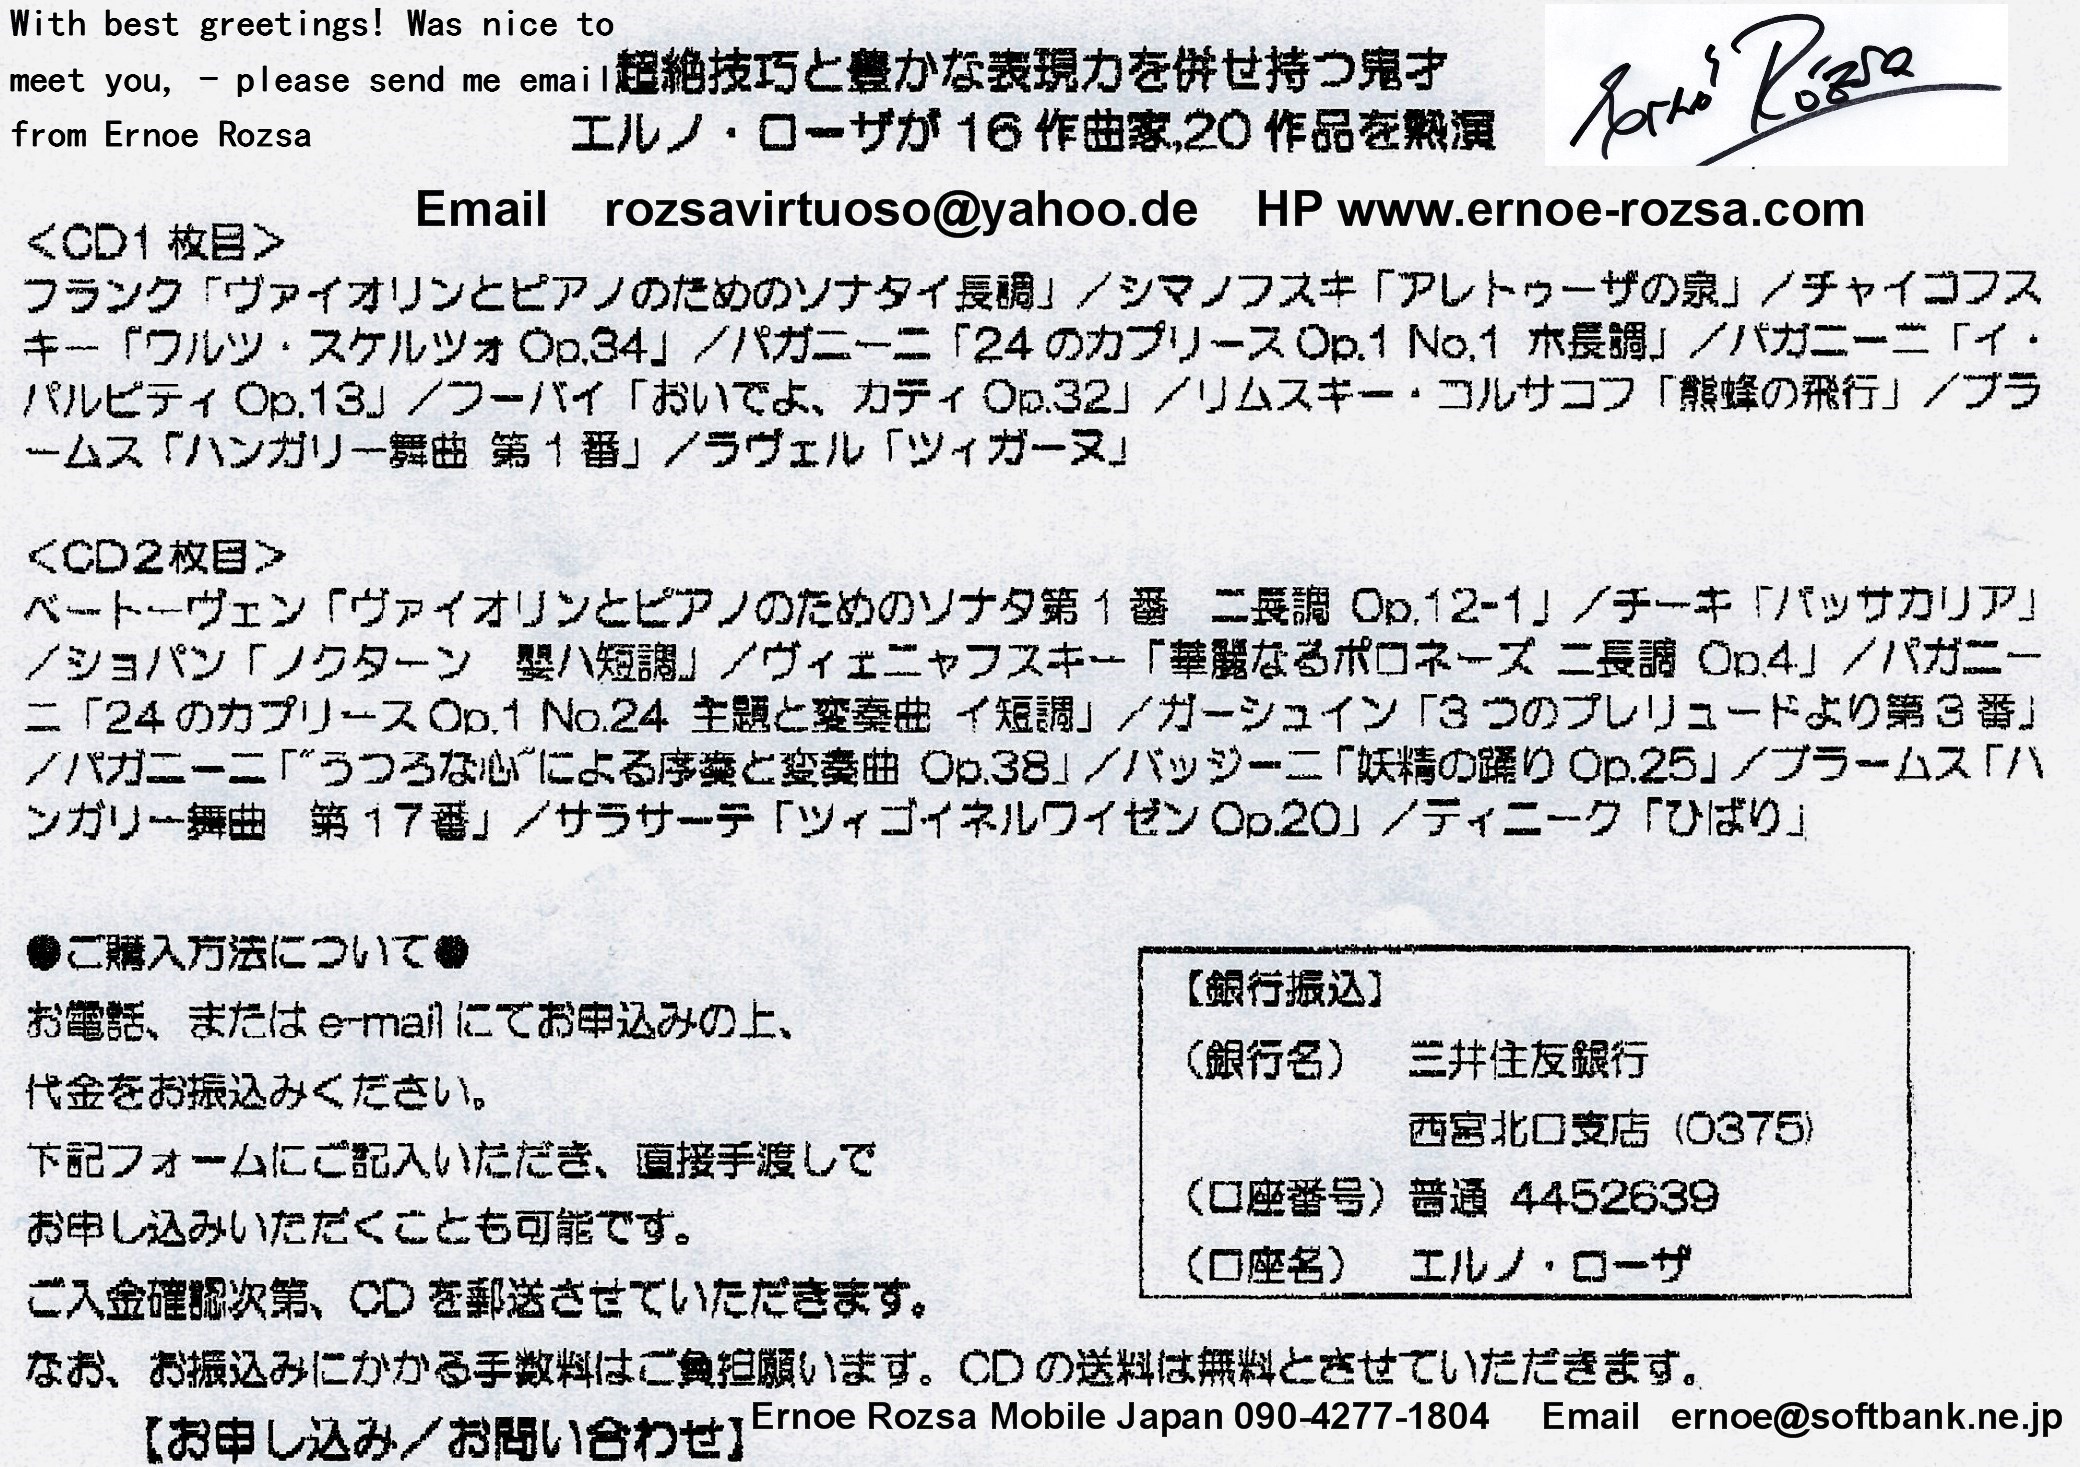 With best greetings! Was nice to
meet you, - please send me email
from Ernoe Rozsa
超絶技巧と豊かな表現力を併せ持つ鬼才
エルノ・ローザが 16 作曲家,20 作品を熱演
Ernö Rózsa
Email rozsavirtuoso@yahoo.de HP www.ernoe-rozsa.com
＜CD1 枚目＞
フランク「ヴァイオリンとピアノのためのソナタイ長調」／シマノフスキ「アレトゥーザの泉」／チャイコフス
キー「ワルツ・スケルツォ Op.34」／パガニーニ「24 のカプリース Op.1 No.1 ホ長調」／パガニーニ「イ・
パルピティ Op.13」／フーバイ「おいでよ、カティ Op.32」／リムスキー・コルサコフ「熊蜂の飛行」／ブラ
ームス「ハンガリー舞曲 第 1 番」／ラヴェル「ツィガーヌ」
＜CD2枚目＞
ベートーヴェン「ヴァイオリンとピアノのためのソナタ第 1 番　ニ長調 Op.12-1」／チーキ「パッサカリア」
／ショパン「ノクターン　嬰ハ短調」／ヴィエニャフスキー「華麗なるポロネーズ ニ長調 Op.4」／パガニー
ニ「24 のカプリース Op.1 No.24 主題と変奏曲 イ短調」／ガーシュイン「3 つのプレリュードより第 3 番」
／パガニーニ「“うつろな心”による序奏と変奏曲 Op.38」／バッジーニ「妖精の踊り Op.25」／ブラームス「ハ
ンガリー舞曲　第 17 番」／サラサーテ「ツィゴイネルワイゼン Op.20」／ディニーク「ひばり」
●ご購入方法について●
お電話、または e-mail にてお申込みの上、
代金をお振込みください。
下記フォームにご記入いただき、直接手渡しで
お申し込みいただくことも可能です。
ご入金確認次第、CD を郵送させていただきます。
なお、お振込みにかかる手数料はご負担願います。CD の送料は無料とさせていただきます。
【銀行振込】
（銀行名）　三井住友銀行
西宮北口支店 (0375)
（口座番号）普通 4452639
（口座名）　エルノ・ローザ
【お申し込み／お問い合わせ】Ernoe Rozsa Mobile Japan 090-4277-1804 Email ernoe@softbank.ne.jp